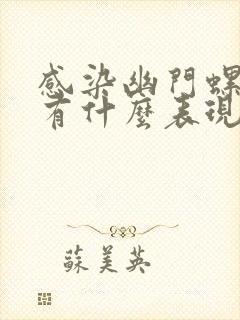 感染幽門螺
有什麼表現
蘇美英